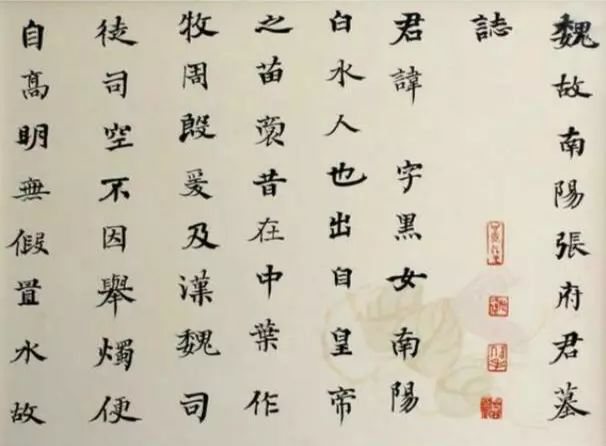 魏故南陽張府君墓
誌
君諱 字黑女南陽
白水人也出自皇帝
之苗裔昔在中葉作
牧周殷爰及漢魏司
徒司空不因舉燭便
自高明無假置水故